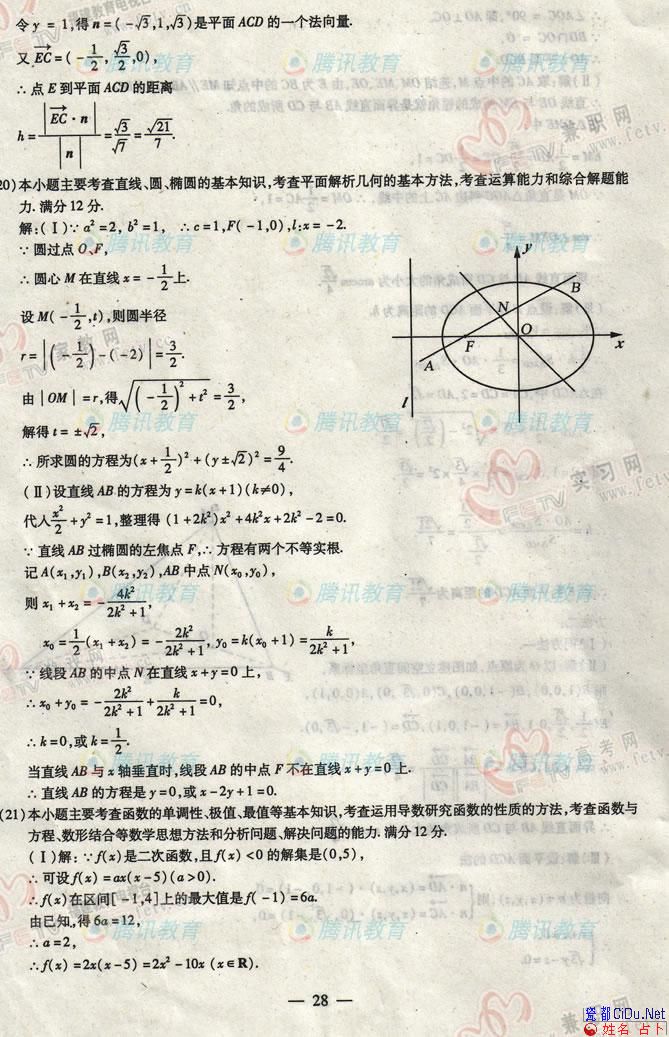 令y = 1,得n = ( -√3,1,√3)是平面ACD的一个法向量.
又EC→ = ( -1/2, √3/2, 0),
∴点E到平面ACD的距离
h = |EC→ · n| / |n| = √3/√7 = √21/7.
20)本小题主要考查直线、圆、椭圆的基本知识,考查平面解析几何的基本方法,考查运算能力和综合解题能
力.满分12分.
解:(Ⅰ)∵a² = 2, b² = 1, ∴c = 1, F( -1,0), l:x = -2.
∵圆过点O、F,
∴圆心M在直线x = -1/2上.
设M( -1/2, t),则圆半径
r = |( -1/2) - ( -2)| = 3/2.
由|OM| = r,得√(( -1/2)² + t²) = 3/2,
解得t = ±√2,
∴所求圆的方程为(x + 1/2)² + (y ± √2)² = 9/4.
(Ⅱ)设直线AB的方程为y = k(x + 1)(k≠0),
代入x²/2 + y² = 1,整理得 (1 + 2k²)x² + 4k²x + 2k² - 2 = 0.
∵直线AB过椭圆的左焦点F,∴方程有两个不等实根.
记A(x₁,y₁),B(x₂,y₂),AB中点N(x₀,y₀),
则x₁ + x₂ = -4k²/(2k² + 1),
x₀ = 1/2(x₁ + x₂) = -2k²/(2k² + 1), y₀ = k(x₀ + 1) = k/(2k² + 1),
∵线段AB的中点N在直线x + y = 0上,
∴x₀ + y₀ = -2k²/(2k² + 1) + k/(2k² + 1) = 0,
∴k = 0,或k = 1/2.
当直线AB与x轴垂直时,线段AB的中点F不在直线x + y = 0上.
∴直线AB的方程是y = 0,或x - 2y + 1 = 0.
(21)本小题主要考查函数的单调性、极值、最值等基本知识,考查运用导数研究函数的性质的方法,考查函数与
方程、数形结合等数学思想方法和分析问题、解决问题的能力.满分12分.
(Ⅰ)解:∵f(x)是二次函数,且f(x) < 0的解集是(0,5),
∴可设f(x) = ax(x - 5)(a > 0).
∴f(x)在区间[ -1,4]上的最大值是f( -1) = 6a.
由已知,得6a = 12,
∴a = 2,
∴f(x) = 2x(x - 5) = 2x² - 10x (x∈R).
y
B
N
O
x
F
A
l
— 28 —
腾讯教育
瓷都CiDu.Net
姓名 占卜